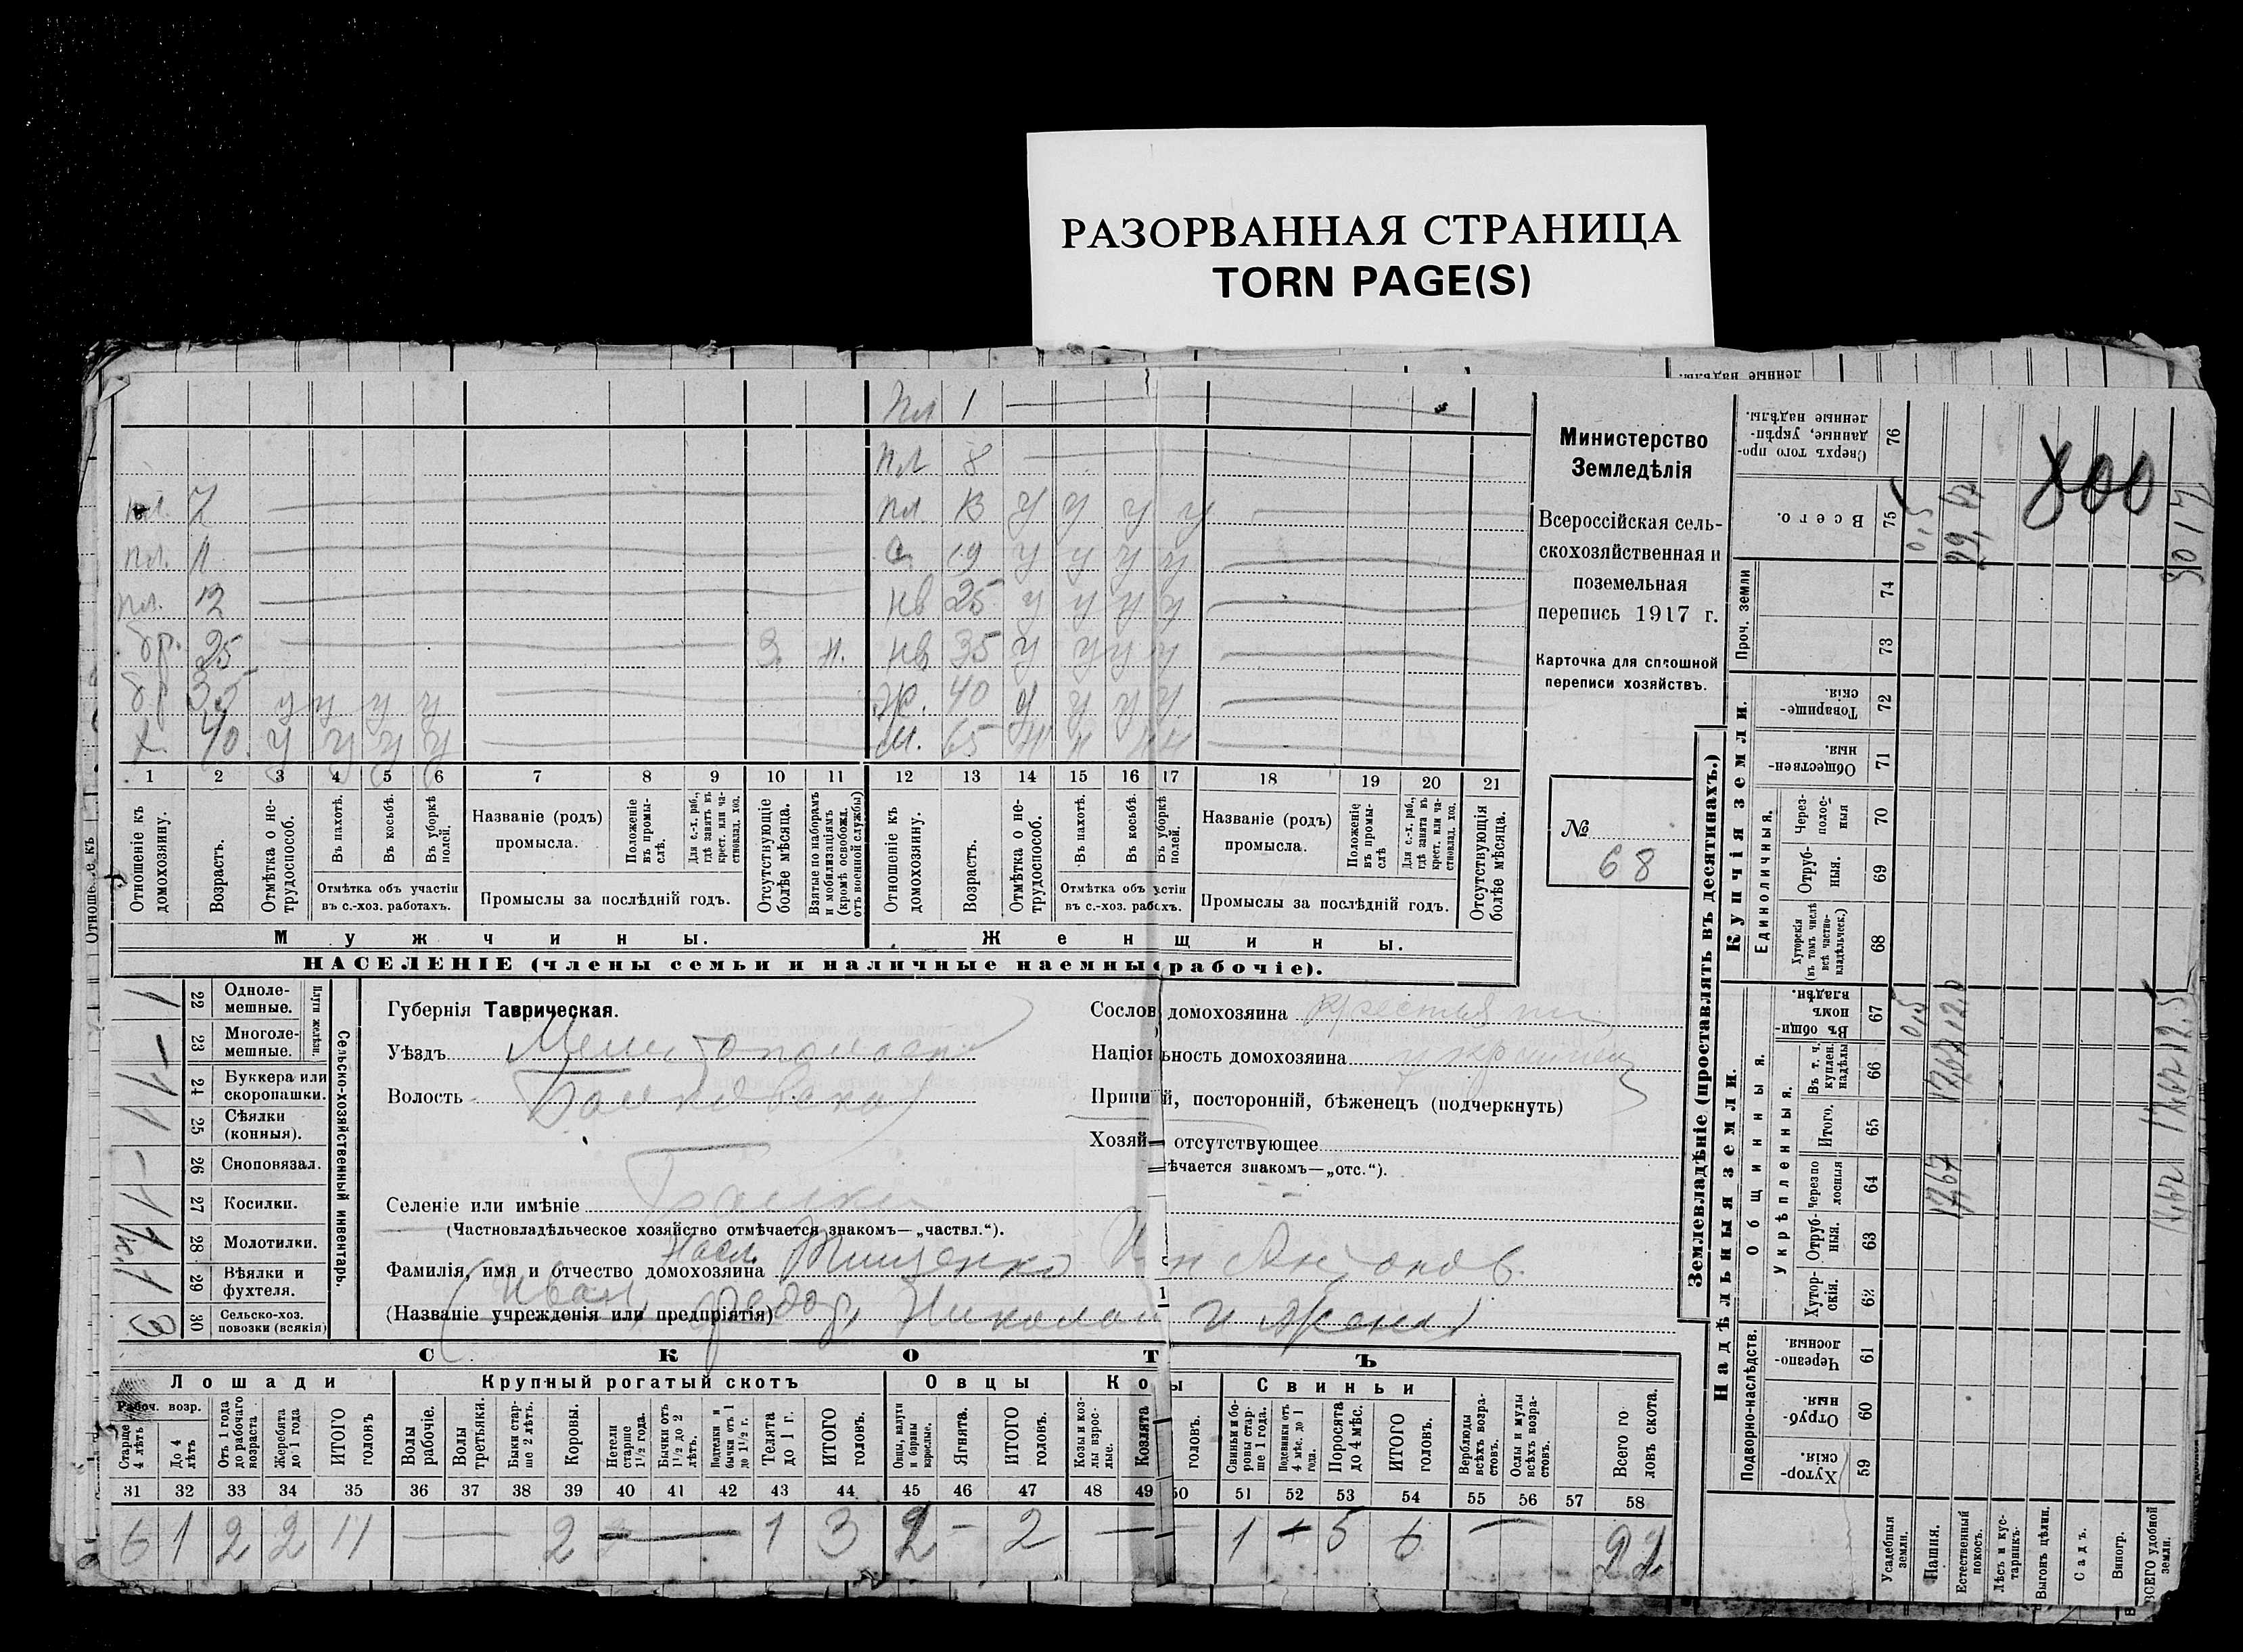 РАЗОРВАННАЯ СТРАНИЦА
TORN PAGE(S)
пл 1
пл 8
пл. 7 пл. 13 у у у у
пл. 11 19 у у у у
пл. 12 нв 25 у у у у
бр. 25 нв 35 у у у у
бр 35 у у у у ж. 40 у у у у
х. 40. у у у у м. 65 н н н н
1 2 3 4 5 6 7 8 9 10 11 12 13 14 15 16 17 18 19 20 21
Отношеніе къ домохозяину.
Возрастъ.
Отмѣтка о не-трудоспособ.
Въ пахотѣ.
Въ косьбѣ.
Въ уборкѣ полей.
Отмѣтка объ участіи въ с.-хоз. работахъ.
Названіе (родъ) промысла.
Положеніе въ промы-слѣ.
Для с.-х. раб., гдѣ занятъ въ крест. или ча-стновлад. хоз.
Промыслы за послѣдній годъ.
Отсутствующіе болѣе мѣсяца.
Взятые по наборамъ и мобилизаціямъ (кромѣ освобожд. отъ военной службы)
Отношеніе къ домохозяину.
Возрастъ.
Отмѣтка о не-трудоспособ.
Въ пахотѣ.
Въ косьбѣ.
Въ уборкѣ полей.
Отмѣтка объ у стіи въ с.-хоз. раб хъ.
Названіе (родъ) промысла.
Положеніе въ промы-слѣ
Для с.-х. раб., гдѣ занята въ крест. или ча-стновлад. хоз.
Промыслы за послѣдній годъ.
Отсутствующія болѣе мѣсяца.
Мужчины. Женщины.
НАСЕЛЕНІЕ (члены семьи и наличные наемны рабочіе).
Министерство
Земледѣлія
Всероссійская сель-
скохозяйственная и
поземельная
перепись 1917 г.
Карточка для сплошной
переписи хозяйствъ.
№
68
Сельско-хозяйственный инвентарь.
Плуги желѣзн.
22 Одноле-мешные. 1
23 Многоле-мешные. –
24 Буккера или скоропашки. 1
25 Сѣялки (конныя). 1
26 Сноповязал. –
27 Косилки. 1
28 Молотилки.
29 Вѣялки и фухтеля. 1
30 Сельско-хоз. повозки (всякія) 3
Губернія Таврическая.
Уѣздъ
Волость
Селеніе или имѣніе
(Частновладѣльческое хозяйство отмѣчается знакомъ—„частвл.“).
Фамилія, имя и отчество домохозяина Тищенко Антонов.
(Названіе учрежденія или предпріятія)
Иван, Федор, Николай и жены
Сослов домохозяина
Націо ьность домохозяина
Припи й, посторонній, бѣженецъ (подчеркнуть)
Хозяй отсутствующее
ѣчается знакомъ—„отс.“).
СКОТЪ
Лошади Крупный рогатый скотъ Овцы Ко ы Свиньи
Рабоч. возр.
Старше 4 лѣтъ
До 4 лѣтъ
Отъ 1 года до рабочаго возраста
Жеребята до 1 года
ИТОГО головъ
Волы рабочіе.
Волы третьяки.
Быки стар-ше 2 лѣтъ.
Коровы.
Нетели старше 1½ года.
Бычки отъ 1½ до 2 лѣтъ.
Подтелки и бычки отъ 1 до 1½ г.
Телята до 1 г.
ИТОГО головъ.
Овцы, валухи и бараны взрослые.
Ягнята.
ИТОГО головъ.
Козы и коз-лы взрос-лые.
Козлята
головъ.
Свиньи и бо-ровы стар-ше 1 года.
Подсвинки отъ 4 мѣс. до 1 года.
Поросята до 4 мѣс.
ИТОГО головъ.
Верблюды всѣхъ возра-стовъ.
Ослы и мулы всѣхъ возра-стовъ.
Всего го-ловъ скота.
31 32 33 34 35 36 37 38 39 40 41 42 43 44 45 46 47 48 49 50 51 52 53 54 55 56 57 58
6 1 2 2 11 — 2 — 1 3 2 – 2 — 1 – 5 6 — 22
Землевладѣніе (проставлять въ десятинахъ.)
Надѣльныя земли. Купчія земли. Проч. земли
Подворно-наслѣдств. Общинныя. Единоличныя.
Укрѣпленныя.
59 Хутор-скія.
60 Отруб-ныя.
61 Черезпо-лосныя.
62 Хутор-скія.
63 Отруб-ныя.
64 Черезпо-лосныя
65 Итого.
66 Въ т. ч. куплен. надѣлы
67 Въ общин-номъ владѣн.
68 Хуторскія (въ томъ числѣ всѣ частно-владѣльческ.)
69 Отруб-ныя.
70 Через-полос-ныя
71 Обществен-ныя.
72 Товарище-скія.
73
74
75 Всего.
76 Сверхъ того про-данные, укрѣп-ленные надѣлы.
Усадебныя земли. 0,5 0,5
Пашня. 17,67
Естественный покосъ.
Лѣсъ и кус-тарникъ.
Выгонъ цѣлин.
Садъ.
Виногр.
ВСЕГО удобной земли.
800